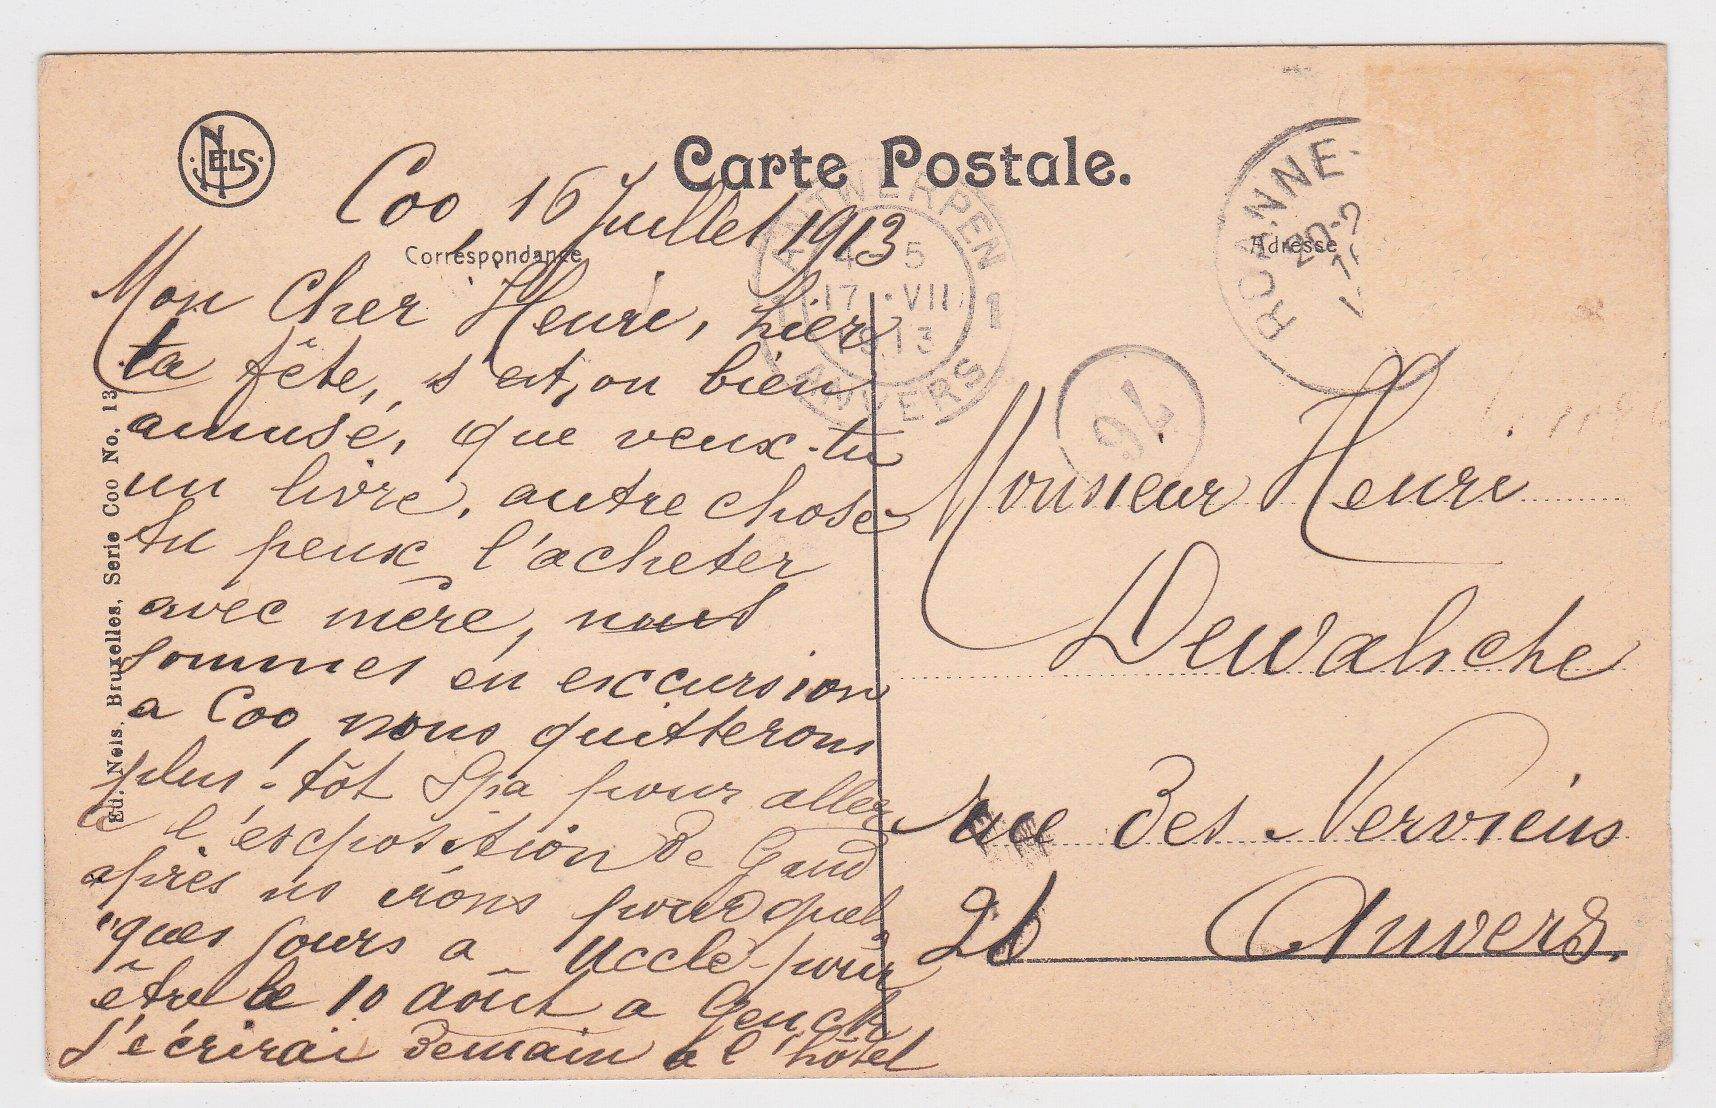 NELS
Carte Postale.
Coo, 16 Juillet 1913
Correspondance
Adresse
ANTWERPEN
4 5
17 · VII
1913
ANVERS
1 1
ROANNE-
20-2
94
Mon cher Henri, hier
ta fête, s'est, on bien
amusé, que veux-tu
un livre, autre chose
tu peux l'acheter
avec mère, nous
sommes en excursion
a Coo, nous quitterons
plus! tôt Spa pour aller
a l'exposition de Gand
après ns irons pour quel
ques jours a Uccle pour
être le 10 août a Genck
J'écrirai demain a l'hôtel
Monsieur Henri
Dewalsche
rue des Nerviens
26 Anvers.
Ed. Nels, Bruxelles, Serie Coo No. 13